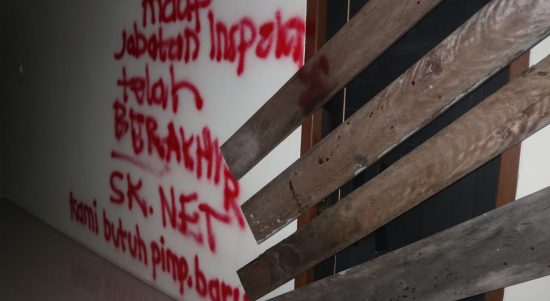 maaf
Jabatan Inspektur
telah
BERAKHIR
SK. NET
kami butuh pimp. baru